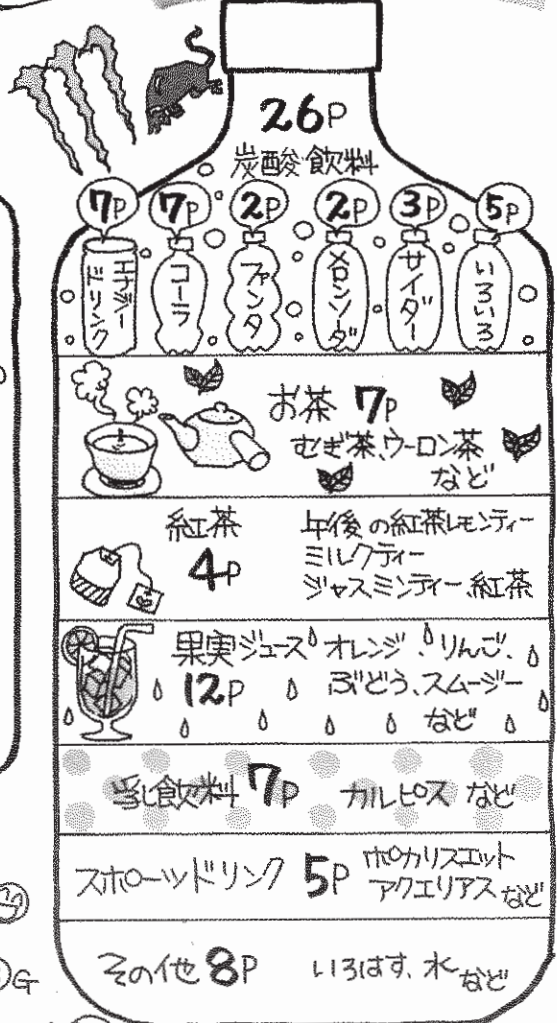 26P
炭酸飲料
7P 7P 2P 2P 3P 5P
エナジードリンク
コーラ
ファンタ
メロンソーダ
サイダー
いろいろ
お茶 7P
むぎ茶、ウーロン茶
など
紅茶
4P
午後の紅茶レモンティー
ミルクティー
ジャスミンティー、紅茶
果実ジュース
12P
オレンジ、りんご、
ぶどう、スムージー
など
乳飲料 7P カルピス など
スポーツドリンク 5P
ポカリスエット
アクエリアスなど
その他 8P いろはす、水など
G